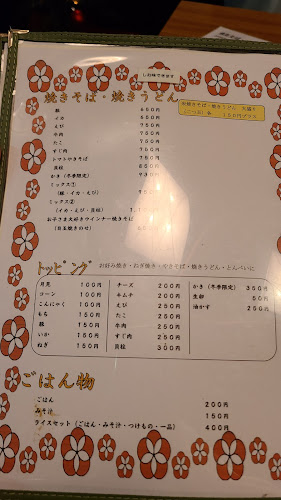 しお味できます
焼きそば・焼きうどん
豚 650円
イカ 650円
えび
牛肉
たこ
すじ肉
トマトやきそば
貝柱
かき(冬季限定)
ミックス①
(豚・イカ・えび)
ミックス②
(イカ・えび・貝柱)
お子さま大好きウインナー焼きそば
(目玉焼きのせ)
トッピング お好み焼き・ねぎ焼き・やきそば・焼きうどん・とんぺいに
月見 100円 チーズ 200円 かき(冬季限定) 350円
コーン 100円 キムチ 200円 生卵 50円
こんにゃく 100円 えび 250円 油かす 250円
もち 150円 たこ 200円
豚 150円 牛肉 200円
いか 150円 すじ肉 250円
ねぎ 150円 貝柱 300円
ごはん物
ごはん 200円
みそ汁 150円
ライスセット(ごはん・みそ汁・つけもの・一品) 400円